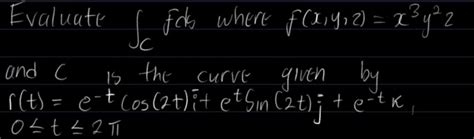 Evaluate ∫_C f ds where f(x,y,z) = x³y²z
and C is the curve given by
r(t) = e^-t cos(2t) i + e^t Sin(2t) j + e^-t K,
0 ≤ t ≤ 2π